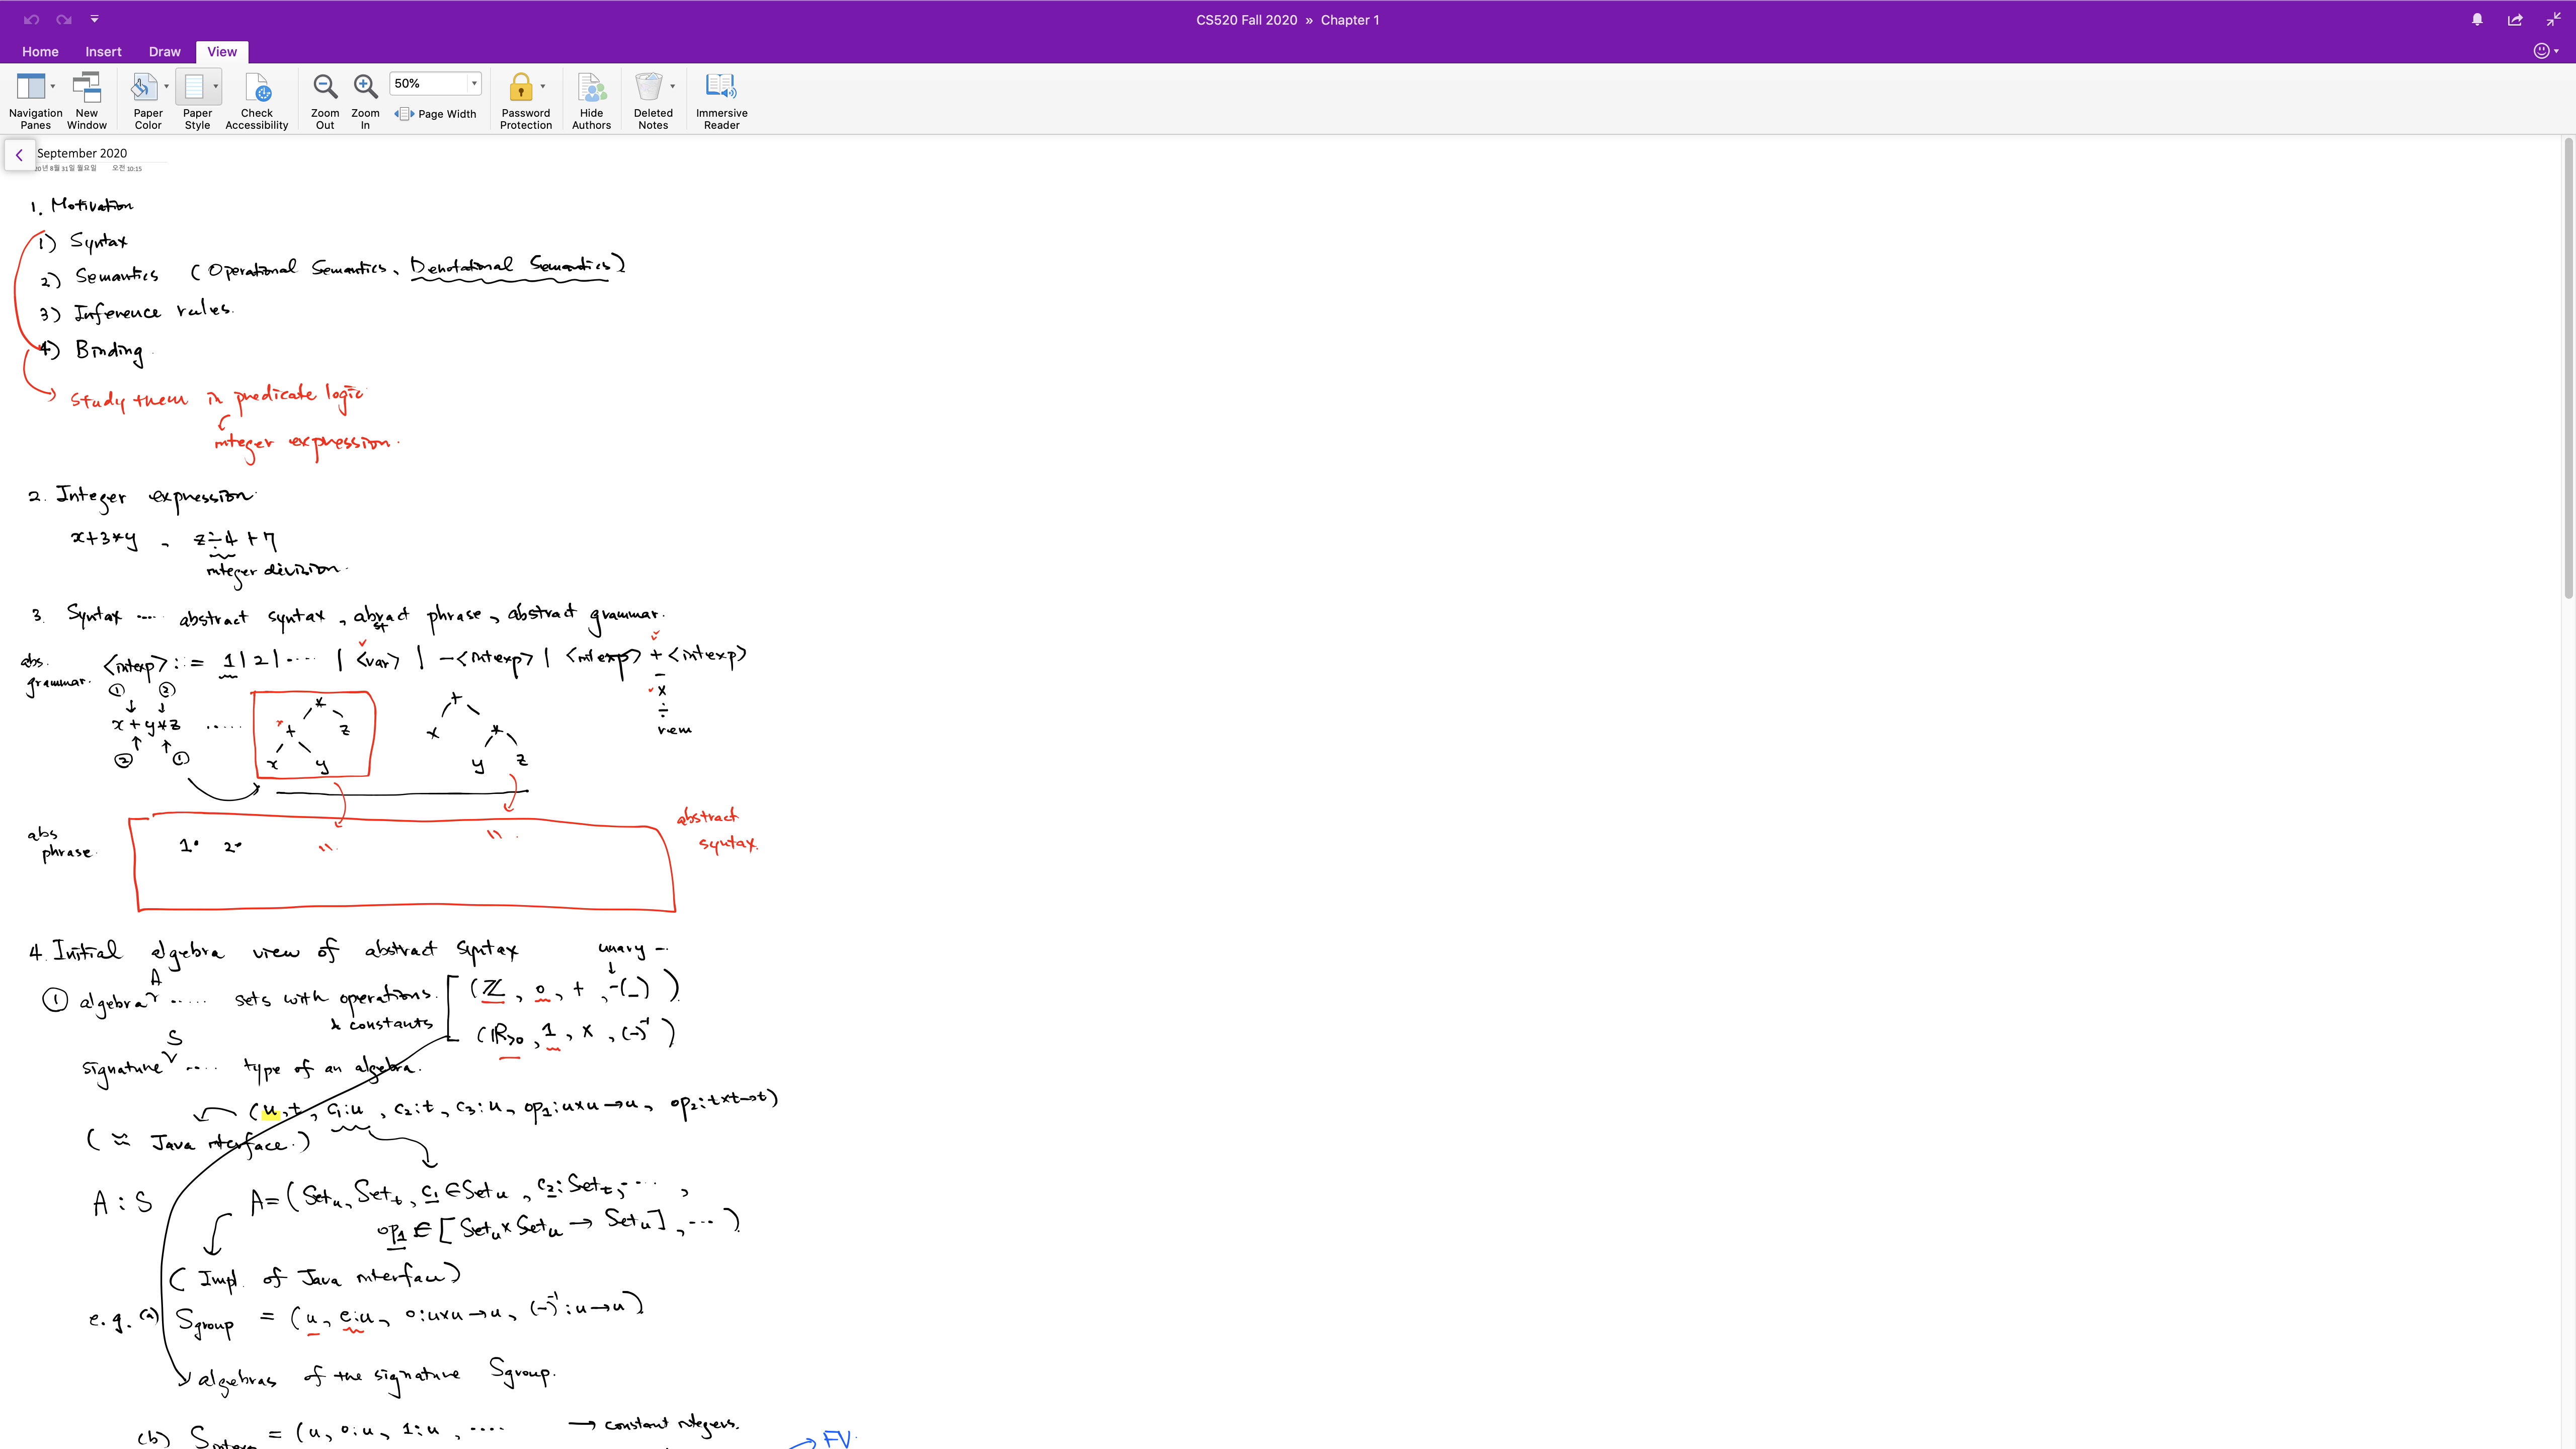 CS520 Fall 2020 » Chapter 1
Home Insert Draw View
50%
Navigation Panes
New Window
Paper Color
Paper Style
Check Accessibility
Zoom Out
Zoom In
Page Width
Password Protection
Hide Authors
Deleted Notes
Immersive Reader
September 2020
20년 8월 31일 월요일 오전 10:15
1. Motivation
1) Syntax
2) Semantics (Operational Semantics, Denotational Semantics)
3) Inference rules.
4) Binding.
study them in predicate logic
integer expression.
2. Integer expression
x+3*y , z÷4+7
integer division.
3. Syntax .... abstract syntax, abract phrase, abstract grammar.
st
abs. grammar. <intexp> ::= 1 | 2 | .... | <var> | -<intexp> | <intexp> + <intexp>
-
×
÷
rem
① ②
x + y * z .....
② ①
* + z x y
+ x * y z
abs phrase. 1• 2•
abstract syntax.
4. Initial algebra view of abstract syntax
unary -.
① algebra A ..... sets with operations. & constants
(ℤ, 0, +, -(_) )
(ℝ>0, 1, ×, (-)⁻¹ )
signature S .... type of an algebra.
(u,t, c₁:u, c₂:t, c₃:u, op₁:u×u→u, op₂:t×t→t)
(≈ Java interface.)
A : S A=(Setu, Sett, c₁∈Setu, c₂:Sett, ....,
op₁ ∈ [Setu×Setu → Setu], ...)
(Impl. of Java interface)
e.g. (a) Sgroup = (u, e:u, o:u×u→u, (-)⁻¹:u→u)
algebras of the signature Sgroup.
(b) = (u, 0:u, 1:u, .... → constant integers.
→ FV.